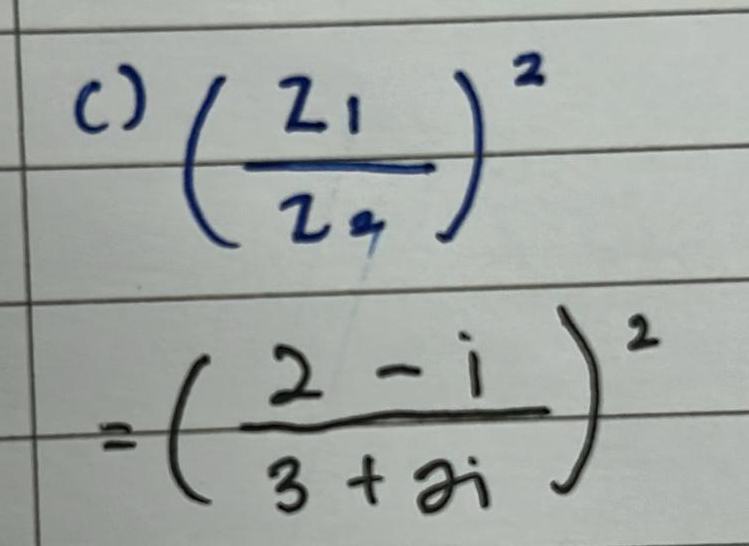 c) (z₁/z₂)²
= (2 - i / 3 + 2i)²